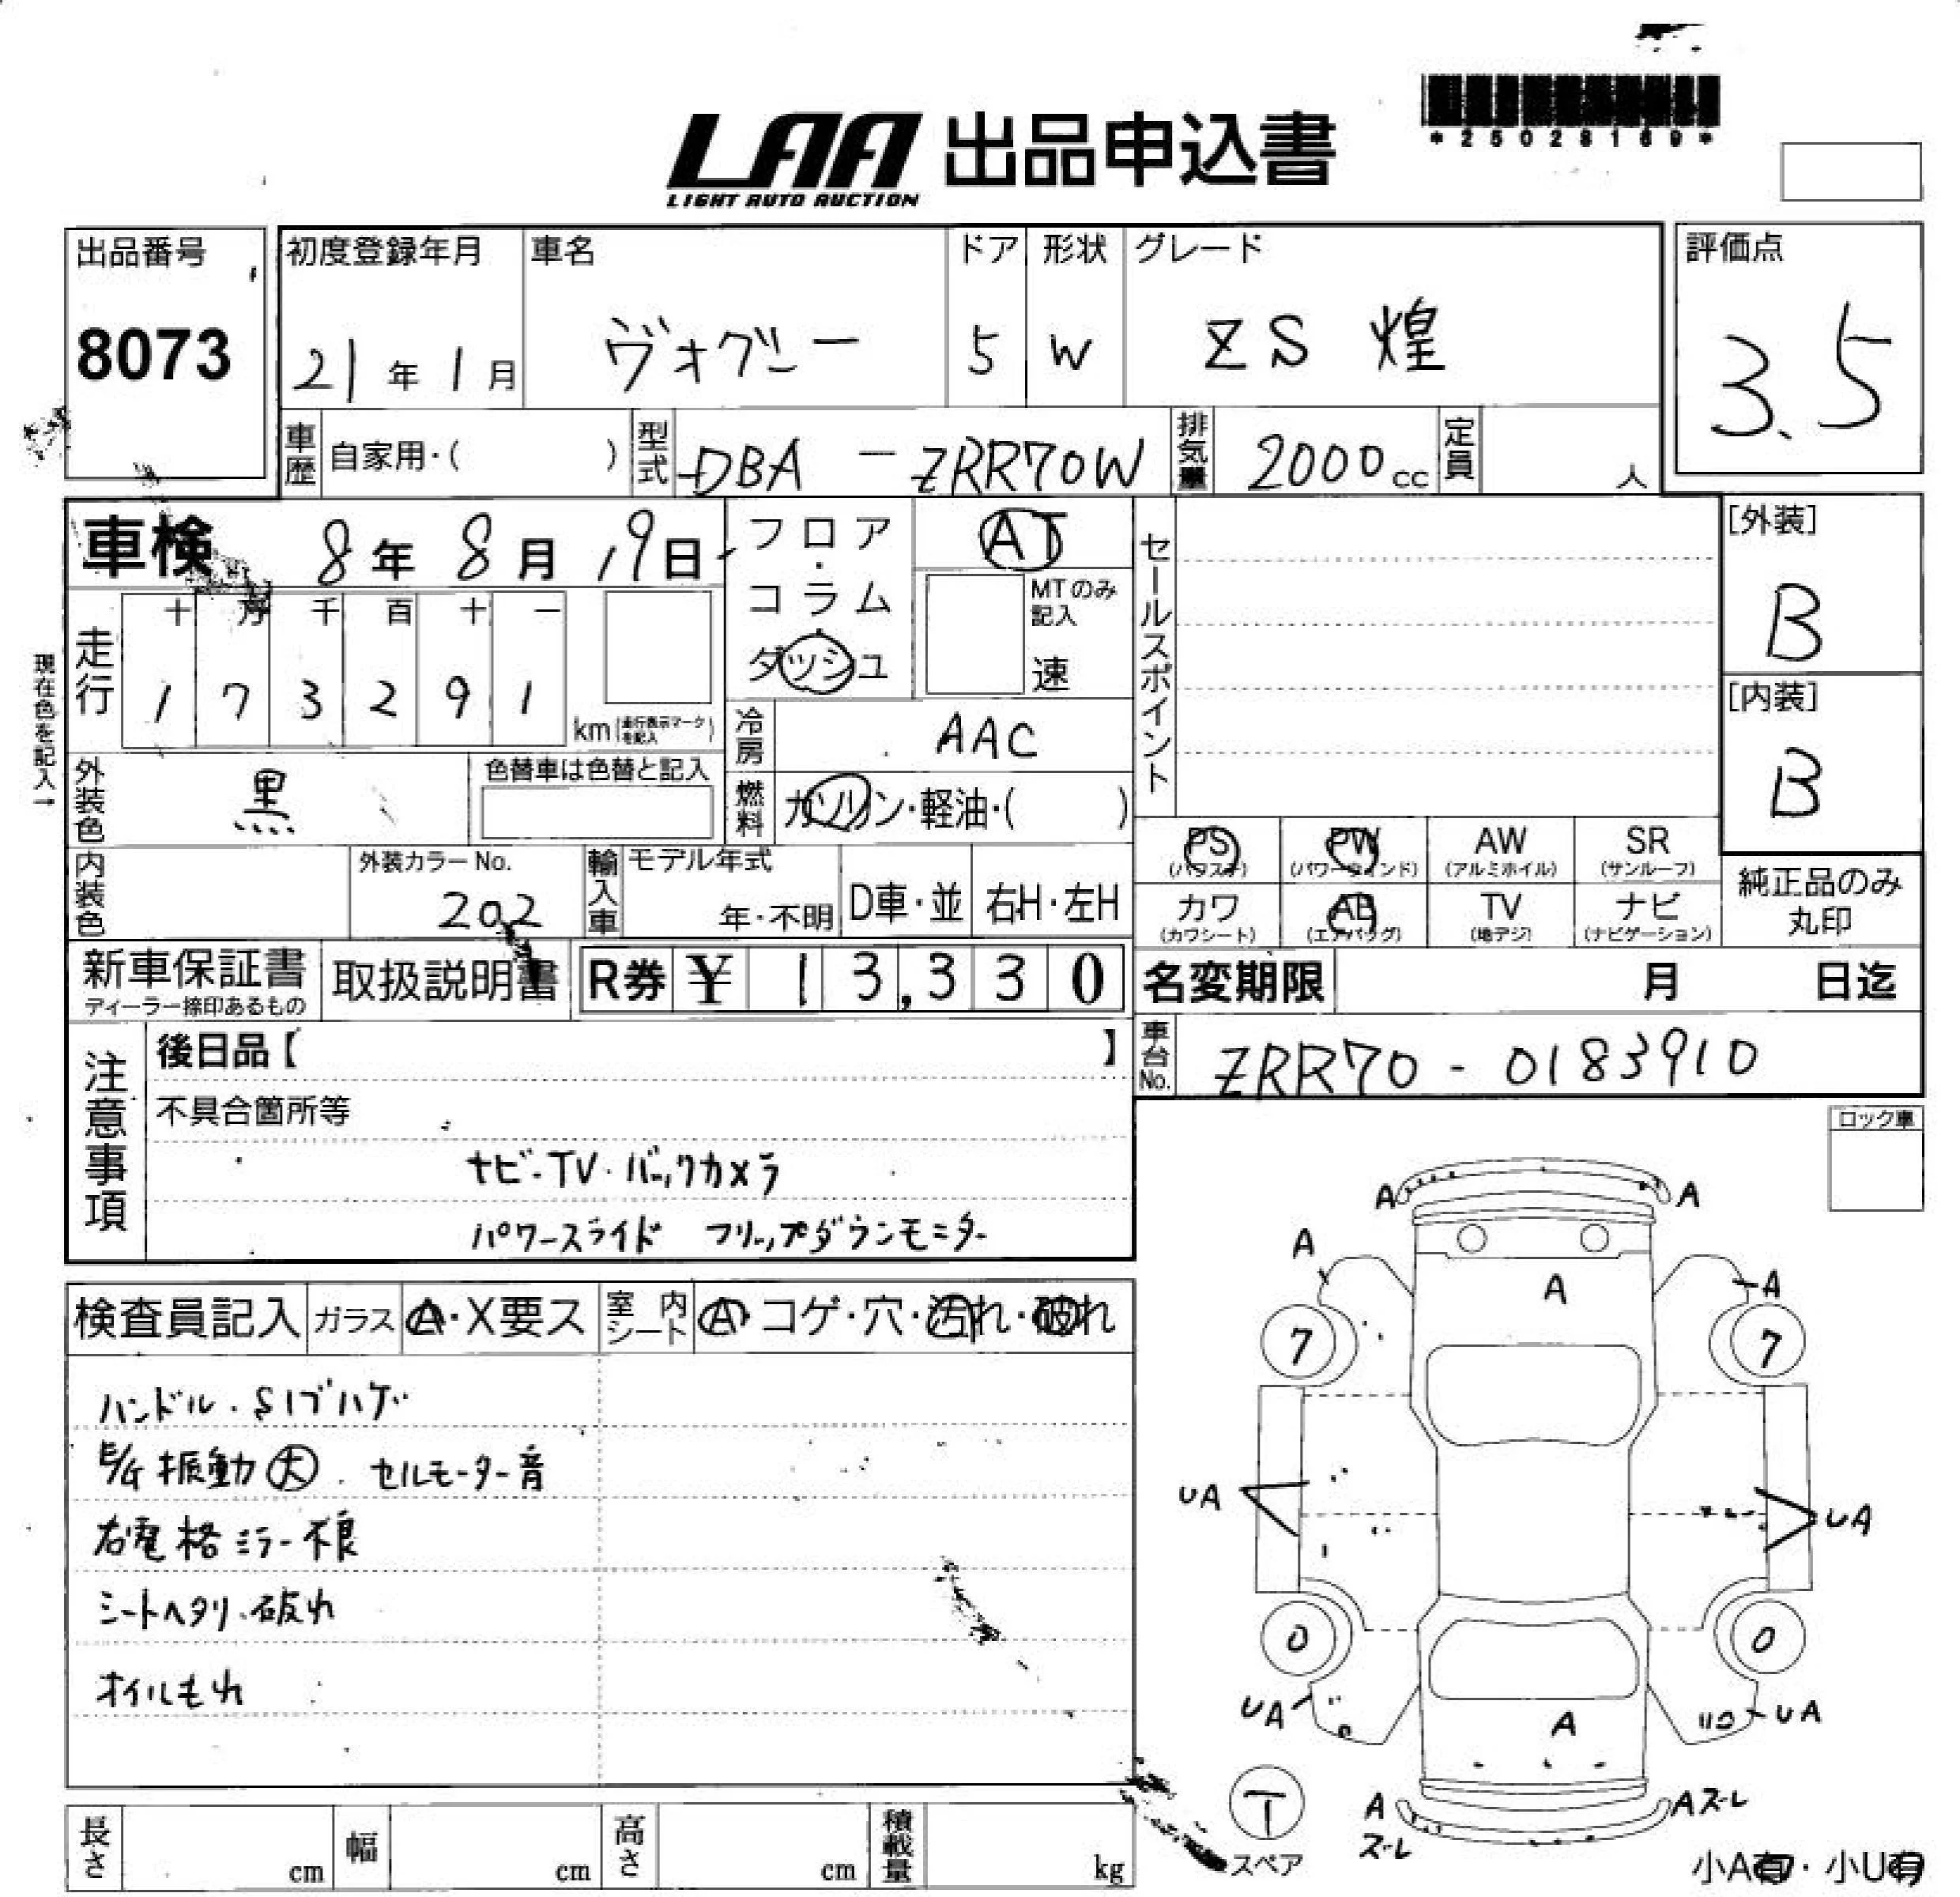 *25028169*
LAA 出品申込書
LIGHT AUTO AUCTION
出品番号
8073
初度登録年月
21年1月
車名
ヴォクシー
ドア
5
形状
W
グレード
ZS 煌
評価点
3.5
車歴 自家用・( )
型式 DBA - ZRR70W
排気量 2000cc
定員 人
車検 8年8月19日
フロア・コラム・ダッシュ
AT
MTのみ記入
速
セールスポイント
[外装]
B
[内装]
B
現在色を記入→
走行
十 万 千 百 十 一
1 7 3 2 9 1 km (走行表示マークを記入)
冷房 AAC
外装色 黒
色替車は色替と記入
燃料 ガソリン・軽油・( )
PS (パワステ) PW (パワーウインド) AW (アルミホイル) SR (サンルーフ)
カワ (カワシート) AB (エアバッグ) TV (地デジ) ナビ (ナビゲーション)
純正品のみ丸印
内装色
外装カラーNo.
202
輸入車 モデル年式
年・不明 D車・並 右H・左H
新車保証書
ディーラー捺印あるもの
取扱説明書
R券 ¥ 13,330
名変期限 月 日迄
車台No. ZRR70 - 0183910
注意事項
後日品【 】
不具合箇所等
ナビ・TV・バックカメラ
パワースライド フリップダウンモニター
ロック車
検査員記入 ガラス A・X要ス 室内シート A・コゲ・穴・汚れ・破れ
ハンドル・Sノブハゲ
E/G振動大 . セルモーター音
右電格ミラー不良
シートヘタリ・破れ
オイルもれ
A A
A A A
7 7
UA UA
0 0
UA A UA
T
スペア
A ズレ Aズレ
小A有・小U有
長さ cm 幅 cm 高さ cm 積載量 kg